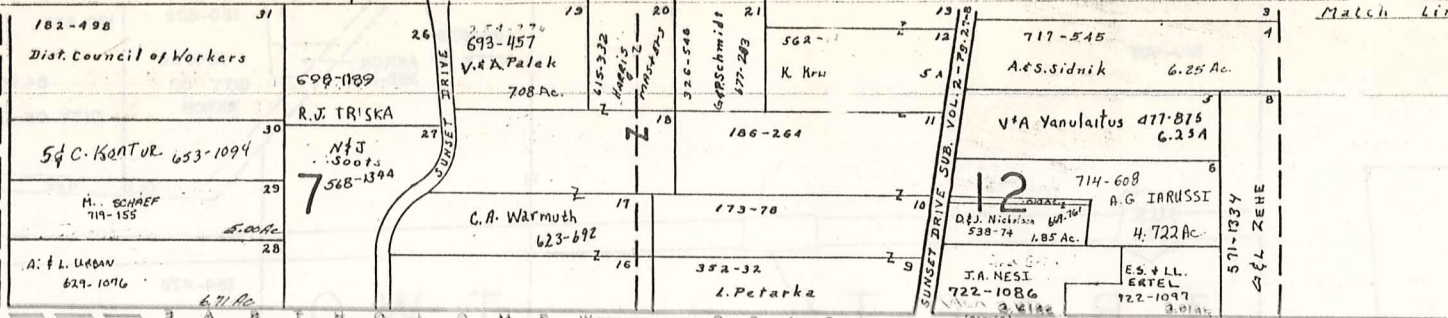 31
182-498
Dist. Council of Workers
30
S & C. KONTUR. 653-1094
29
M. SCHAEF
719-155
5.00 Ac
28
A. & L. URBAN
629-1076
6.71 Ac
26
698-1189
R.J. TRISKA
27
N & J
Soots
568-1344
7
SUNSET DRIVE
19
693-457
V. & A. Palek
7.08 Ac.
615-332
HARRIS
20
326-546
21
G & P. Schmidt
677-283
13
12
562-
K. Krw
5 A
18
186-264
11
17
C.A. Warmuth
623-692
173-78
10
16
352-32
L. Petarka
9
SUNSET DRIVE SUB. VOL. 2-
3
Match
717-545
A. & S. Sidnik
6.25 Ac.
4
5
V & A Yanulaitus 477-875
6.25 A
8
6
12
714-608
A.G IARUSSI
4.722 Ac
D. & J. Nicholson
538-74
1.85 Ac.
J.A. NESI
722-1086
E.S. & L.L.
ERTEL
722-1097
571-1334
G & L ZEHE